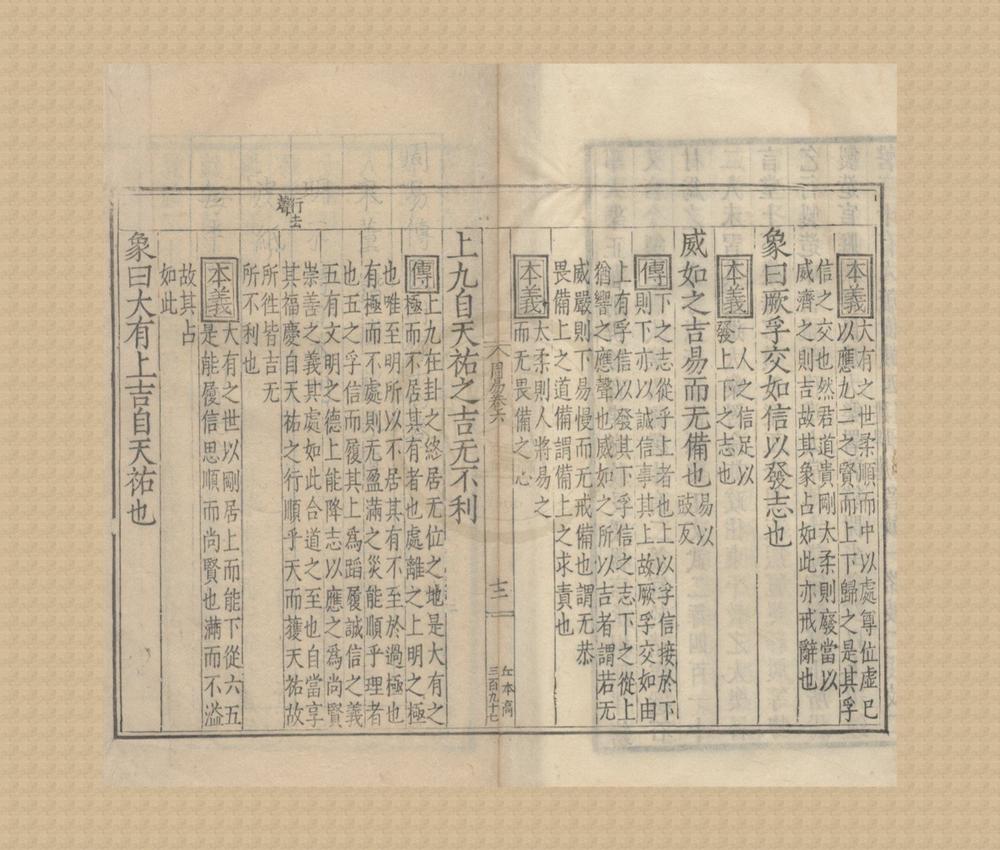 本義大有之世柔順而中以處尊位虛己
以應九二之賢而上下歸之是其孚
信之交也然君道貴剛太柔則廢當以
威濟之則吉故其象占如此亦戒辭也
象曰厥孚交如信以發志也
本義一人之信足以
發上下之志也
威如之吉易而无備也易以
豉反
傳下之志從乎上者也上以孚信接於下
則下亦以誠信事其上故厥孚交如由
上有孚信以發其下孚信之志下之從上
猶響之應聲也威如之所以吉者謂若无
威嚴則下易慢而无戒備也謂无恭
畏備上之道備謂備上之求責也
本義太柔則人將易之
而无畏備之心
周易卷六
十三
丘本高
三百九十七
上九自天祐之吉无不利
傳上九在卦之終居无位之地是大有之
極而不居其有者也處離之上明之極
也唯至明所以不居其有不至於過極也
有極而不處則无盈滿之災能順乎理者
也五之孚信而履其上爲蹈履誠信之義
五有文明之德上能降志以應之爲尚賢
崇善之義其處如此合道之至也自當享
其福慶自天祐之行順乎天而獲天祐故
行去
聲
所徃皆吉无
所不利也
本義大有之世以剛居上而能下從六五
是能履信思順而尚賢也滿而不溢
故其占
如此
象曰大有上吉自天祐也